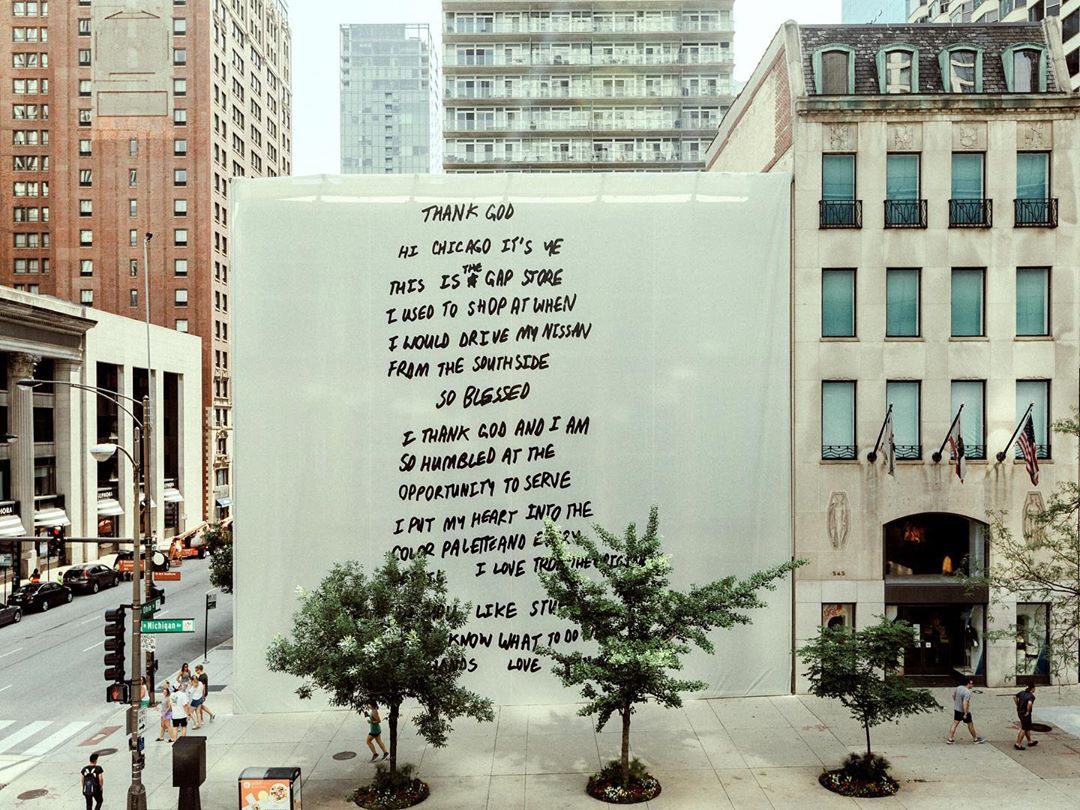 THANK GOD
HI CHICAGO IT'S YE
THIS IS THE GAP STORE
I USED TO SHOP AT WHEN
I WOULD DRIVE MY NISSAN
FROM THE SOUTHSIDE
SO BLESSED
I THANK GOD AND I AM
SO HUMBLED AT THE
OPPORTUNITY TO SERVE
I PUT MY HEART INTO THE
COLOR PALETTE AND
I LOVE THE
LIKE
KNOW WHAT TO DO
LOVE
Michigan
545